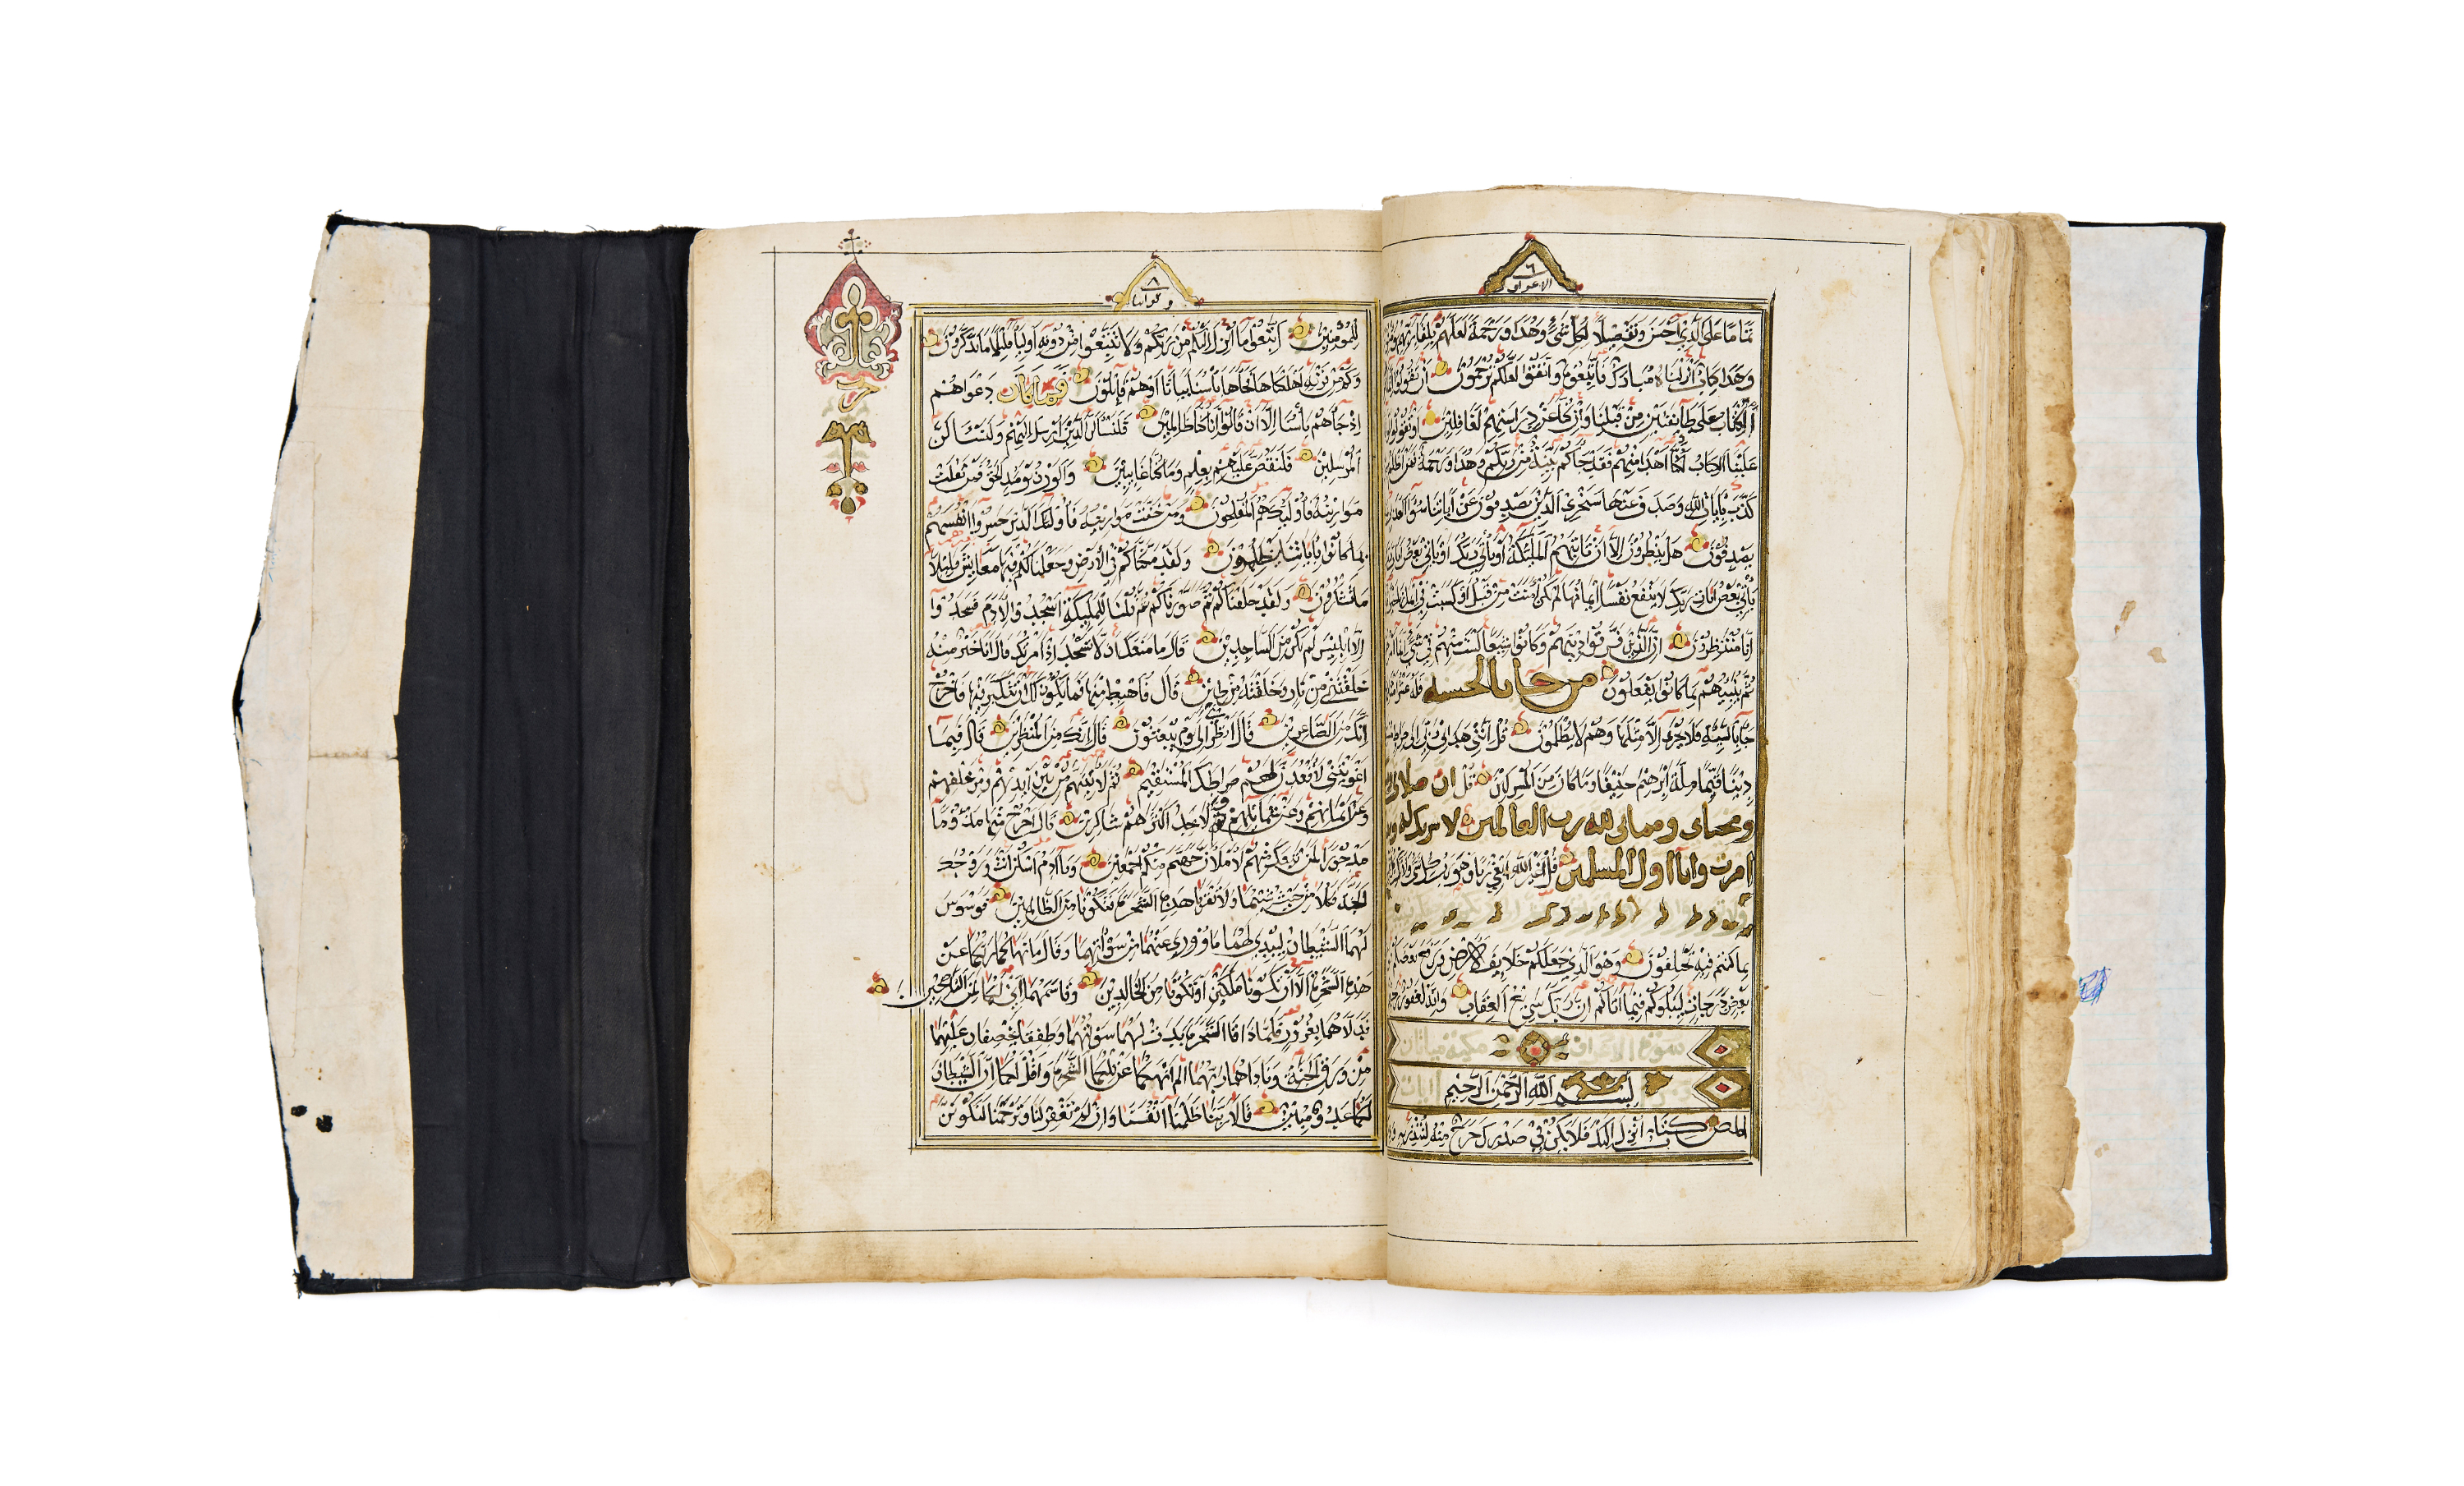 ٦
الاعراف
تماما على الذي احسن وتفصيلا لكل شيء وهدا ورحمة لعلهم بلقاء ربهم
وهذا كتاب انزلناه مبارك فاتبعوه واتقوا لعلكم ترحمون ان تقولوا
الكتاب على طايفتين من قبلنا وان كنا عن دراستهم لغافلين او تقولوا
علينا الكتاب لكنا اهدا منهم فقد جاكم بينة من ربكم وهدا ورحمة فمن اظلم
كذب بايات الله وصدف عنها سنجزي الذين يصدفون عن اياتنا سوء العذاب
يصدفون هل ينظرون الا ان تاتيهم الملئكة او ياتي ربك او ياتي بعض ايات
ياتي بعض ايات ربك لا ينفع نفسا ايمانها لم تكن امنت من قبل او كسبت في ايمانها
انا منتظرون ان الذين فرقوا دينهم وكانوا شيعا لست منهم في شيء انما
ثم ينبيهم بما كانوا يفعلون من جا بالحسنه فله عشر
جا بالسيئة فلا يجزى الا مثلها وهم لا يظلمون قل انني هداني ربي الى صراط
دينا قيما ملة ابرهيم حنيفا وما كان من المشركين قل ان صلاتي
ومحياي ومماتي لله رب العالمين لا شريك له
امرت وانا اول المسلمين قل اغير الله ابغي ربا وهو رب كل شيء ولا
بما كنتم فيه تختلفون وهو الذي جعلكم خلايف الارض ورفع بعضكم
بعض درجات ليبلوكم فيما اتاكم ان ربك سريع العقاب وانه لغفور
سورة الاعراف مكية مايتان
ايات
بسم الله الرحمن الرحيم
المص كتاب انزل اليك فلا يكن في صدرك حرج منه لتنذر به
٨
ولواننا
للمومنين اتبعوا ما انزل اليكم من ربكم ولا تتبعوا من دونه اوليا قليلا ما تذكرون
وكم من قرية اهلكناها فجاها باسنا بياتا او هم قايلون فما كان دعواهم
اذ جاهم باسنا الا ان قالوا انا كنا ظالمين فلنسالن الذين ارسل اليهم ولنسالن
المرسلين فلنقصن عليهم بعلم وما كنا غايبين والوزن يومئذ الحق فمن ثقلت
موازينه فاوليك هم المفلحون ومن خفت موازينه فاوليك الذين خسروا انفسهم
بما كانوا باياتنا يظلمون ولقد مكناكم في الارض وجعلنا لكم فيها معايش قليلا
ما تشكرون ولقد خلقناكم ثم صورناكم ثم قلنا للمليكة اسجدوا لادم فسجدوا
الا ابليس لم يكن من الساجدين قال ما منعك ان لا تسجد اذ امرتك قال انا خير منه
خلقتني من نار وخلقته من طين قال فاهبط منها فما يكون لك ان تتكبر فيها فاخرج
انك من الصاغرين قال انظرني الى يوم يبعثون قال انك من المنظرين قال فبما
اغويتني لاقعدن لهم صراطك المستقيم ثم لاتينهم من بين ايديهم ومن خلفهم
وعن ايمانهم وعن شمايلهم ولا تجد اكثرهم شاكرين قال اخرج منها مذوما
مدحورا لمن تبعك منهم لاملان جهنم منكم اجمعين ويا ادم اسكن انت وزوجك
الجنة فكلا من حيث شيتما ولا تقربا هذه الشجرة فتكونا من الظالمين فوسوس
لهما الشيطان ليبدي لهما ما ووري عنهما من سواتهما وقال ما نهاكما ربكما عن
هذه الشجرة الا ان تكونا ملكين او تكونا من الخالدين وقاسمهما اني لكما لمن الناصحين
فدلاهما بغرور فلما ذاقا الشجرة بدت لهما سواتهما وطفقا يخصفان عليهما
من ورق الجنة وناداهما ربهما الم انهكما عن تلكما الشجرة واقل لكما ان الشيطان
لكما عدو مبين قالا ربنا ظلمنا انفسنا وان لم تغفر لنا وترحمنا لنكونن